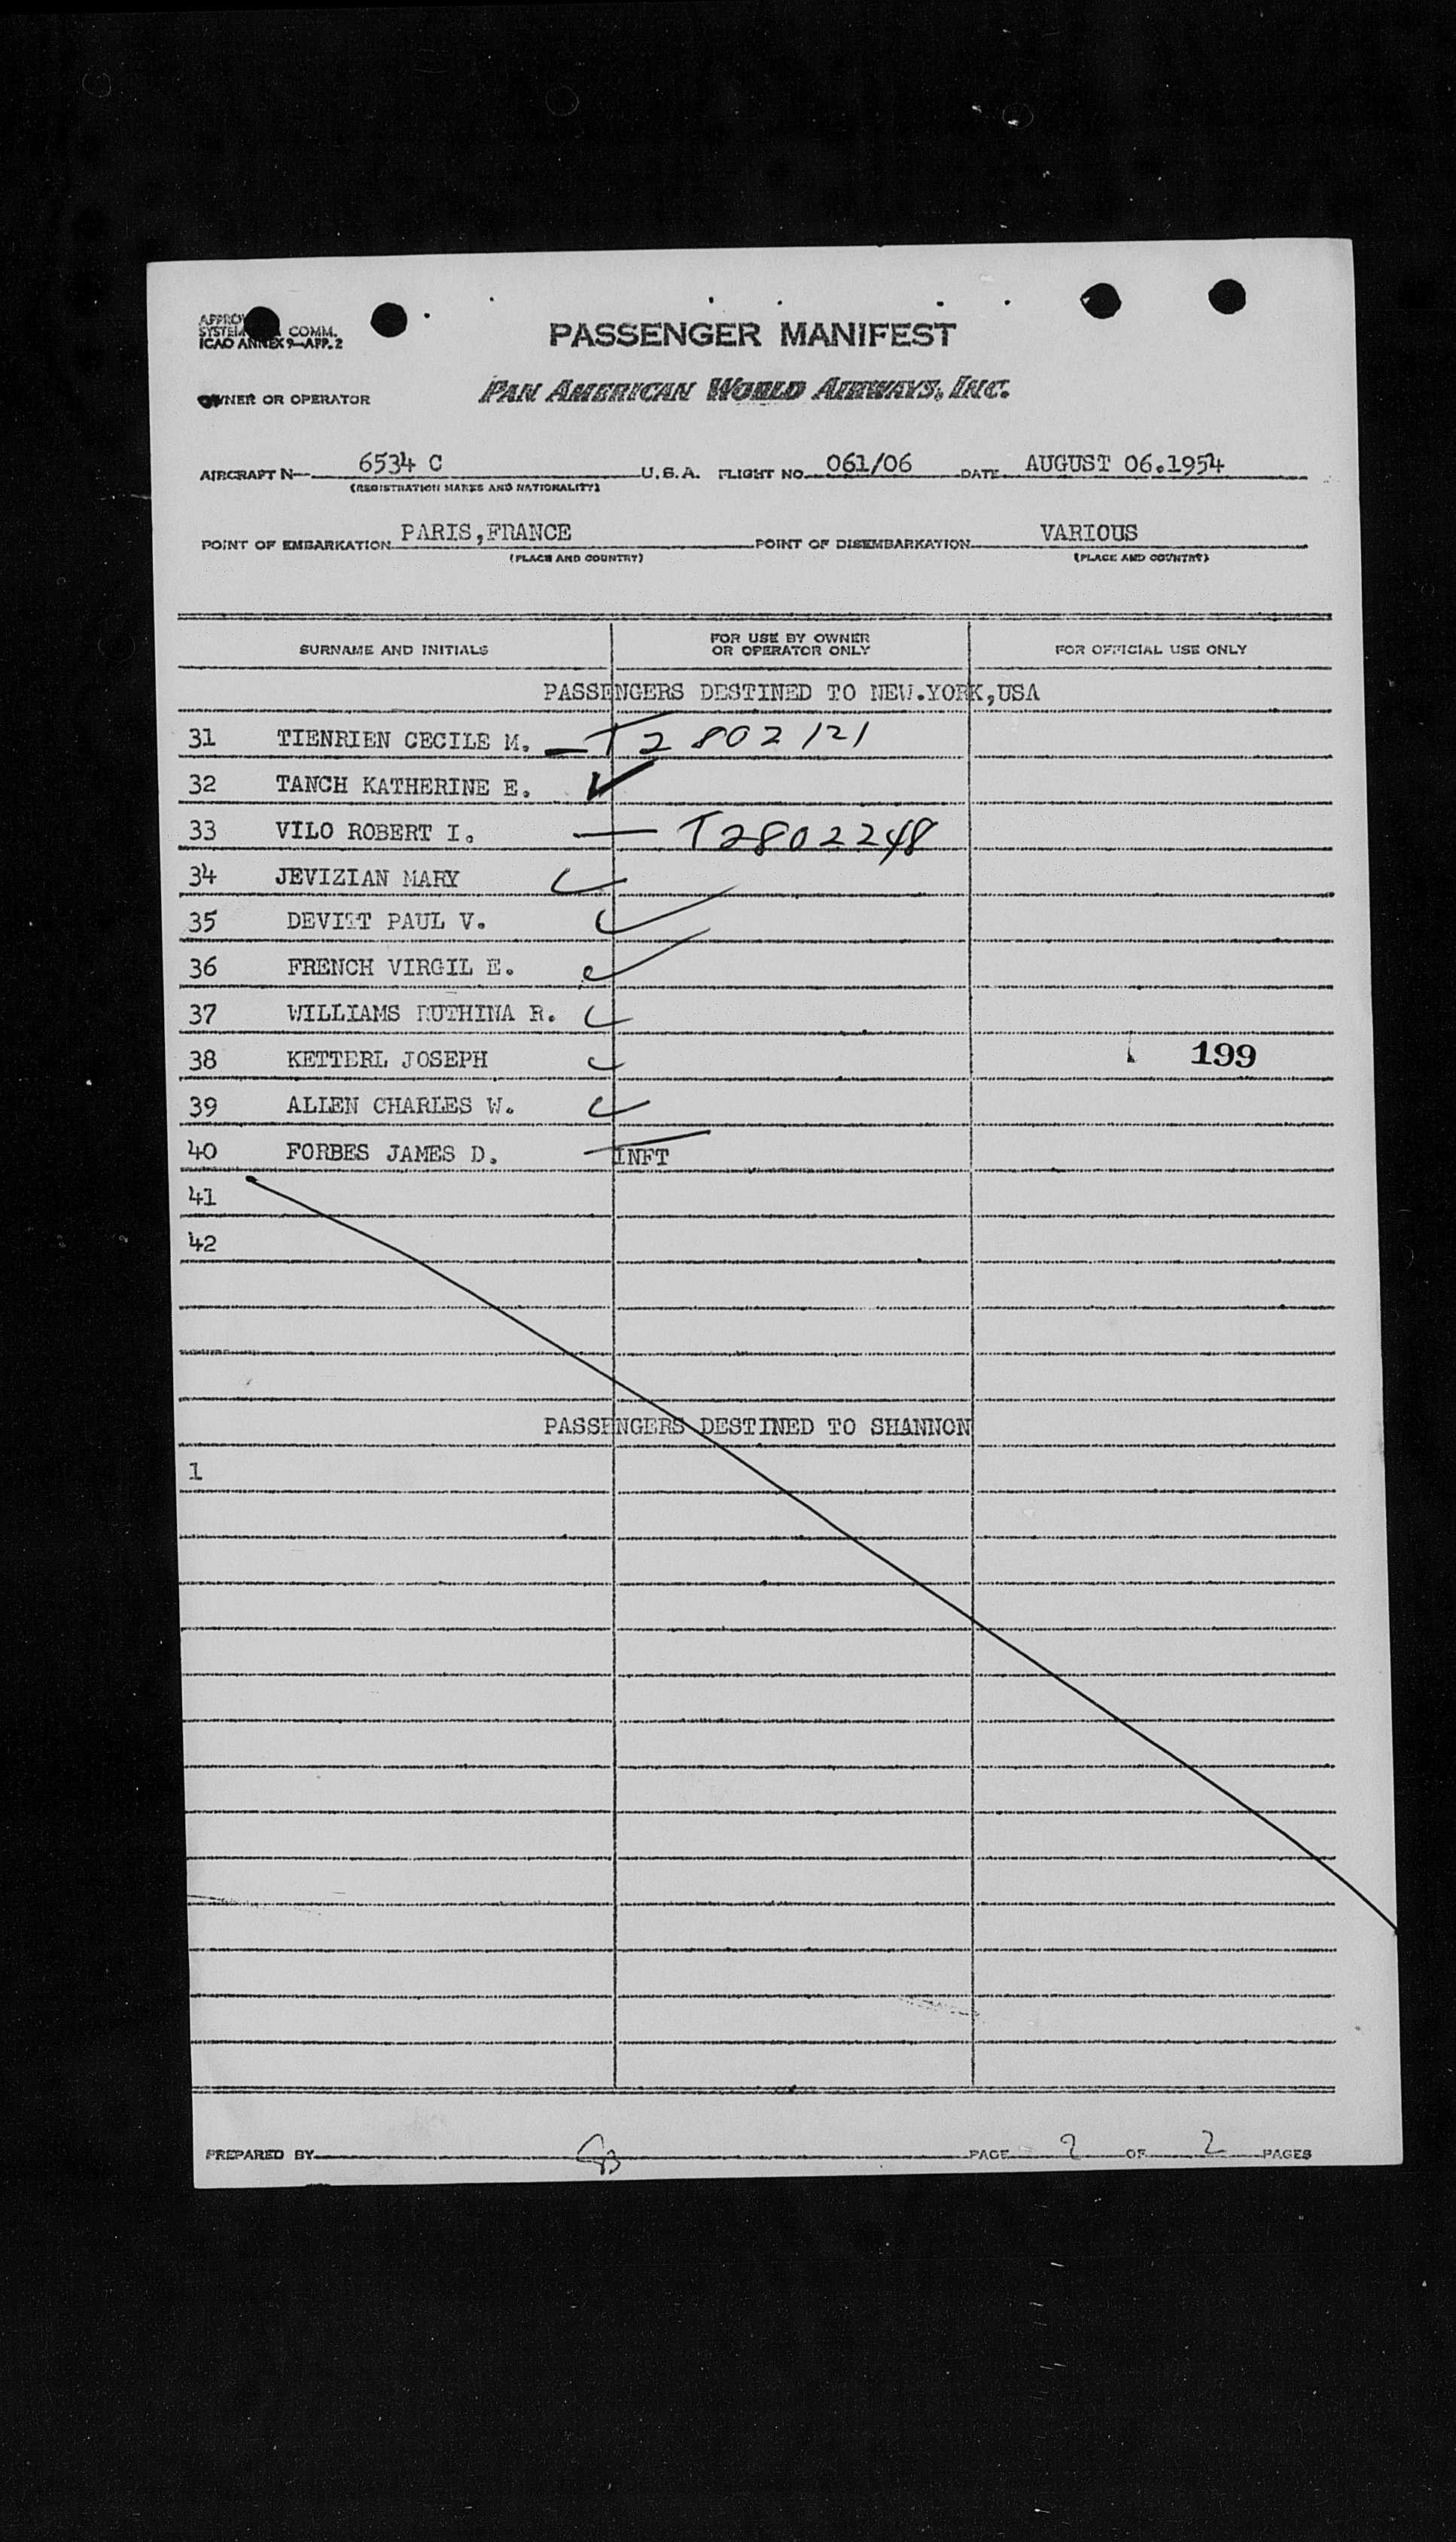 SYSTEM COMM.
ICAO ANNEX 9—APP. 2
PASSENGER MANIFEST
OWNER OR OPERATOR
PAN AMERICAN WORLD AIRWAYS, INC.
AIRCRAFT N— 6534 C U.S.A. FLIGHT NO. 061/06 DATE AUGUST 06.1954
(REGISTRATION MARKS AND NATIONALITY)
POINT OF EMBARKATION PARIS,FRANCE POINT OF DISEMBARKATION VARIOUS
(PLACE AND COUNTRY) (PLACE AND COUNTRY)
SURNAME AND INITIALS FOR USE BY OWNER OR OPERATOR ONLY FOR OFFICIAL USE ONLY
PASSENGERS DESTINED TO NEW.YORK,USA
31 TIENRIEN CECILE M. — T2802121
32 TANCH KATHERINE E. ✓
33 VILO ROBERT I. — T2802248
34 JEVIZIAN MARY ✓
35 DEVITT PAUL V. ✓
36 FRENCH VIRGIL E. ✓
37 WILLIAMS RUTHINA R. ✓
38 KETTERL JOSEPH ✓ 199
39 ALLEN CHARLES W. ✓
40 FORBES JAMES D. INFT
41
42
PASSENGERS DESTINED TO SHANNON
1
PREPARED BY PAGE 2 OF 2 PAGES